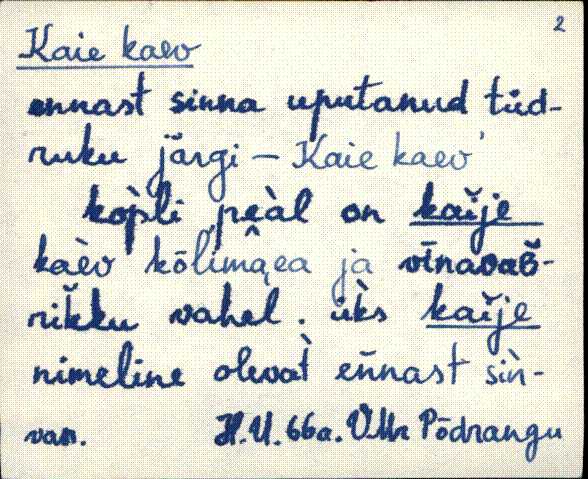 2
Kaie kaev
ennast sinna uputanud tüd-
ruku järgi – Kaie kaev'
kòpli peàl on kaĭje
kaèv kõlimàea ja vīnavaß-
rikku vahel. üks kaĭje
nimeline olevat̀ en̆nast sìn-
van. H.U. 66a. VMr Põdrangu